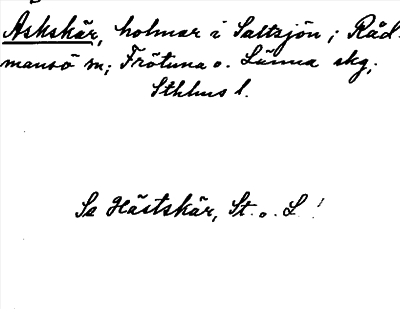 Askskär, holmar i Saltsjön; Råd-
mansö sn; Frötuna o. Länna skg;
Sthlms l.
Se Hästskär, St. o. L!